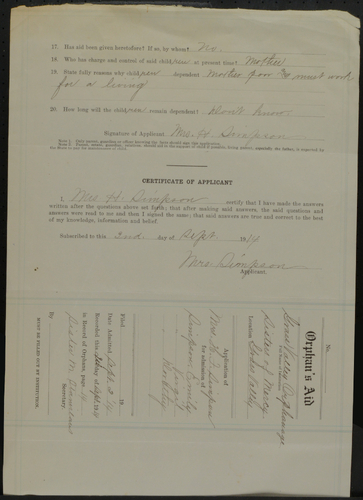 17. Has aid been given heretofore? If so, by whom? No.
18. Who has charge and control of said children at present time? Mother
19. State fully reasons why children dependent Mother poor & must work
for a living
20. How long will the children remain dependent? don't know
Signature of Applicant Mrs. H Simpson
CERTIFICATE OF APPLICANT
I, Mrs. H. Simpson certify that I have made the answers
written after the questions above set forth; that after making said answers, the said questions and
answers were read to me and then I signed the same; that said answers are true and correct to the best
of my knowledge, information and belief.
Subscribed to this 2nd. day of Sept. 1914
Mrs Simpson
Applicant.
No.
Orphan's Aid
Grass Valley Orphanage
Sisters of Mercy
Location Grass Valley
Application of
Mrs. H. Simpson
for admission of
Simpson, Emily
Filed 19
Date Admitted Sept. 2, 14
in Record of Orphans, page
By Sister M.
Secretary.
MUST BE FILLED OUT BY INSTITUTION.